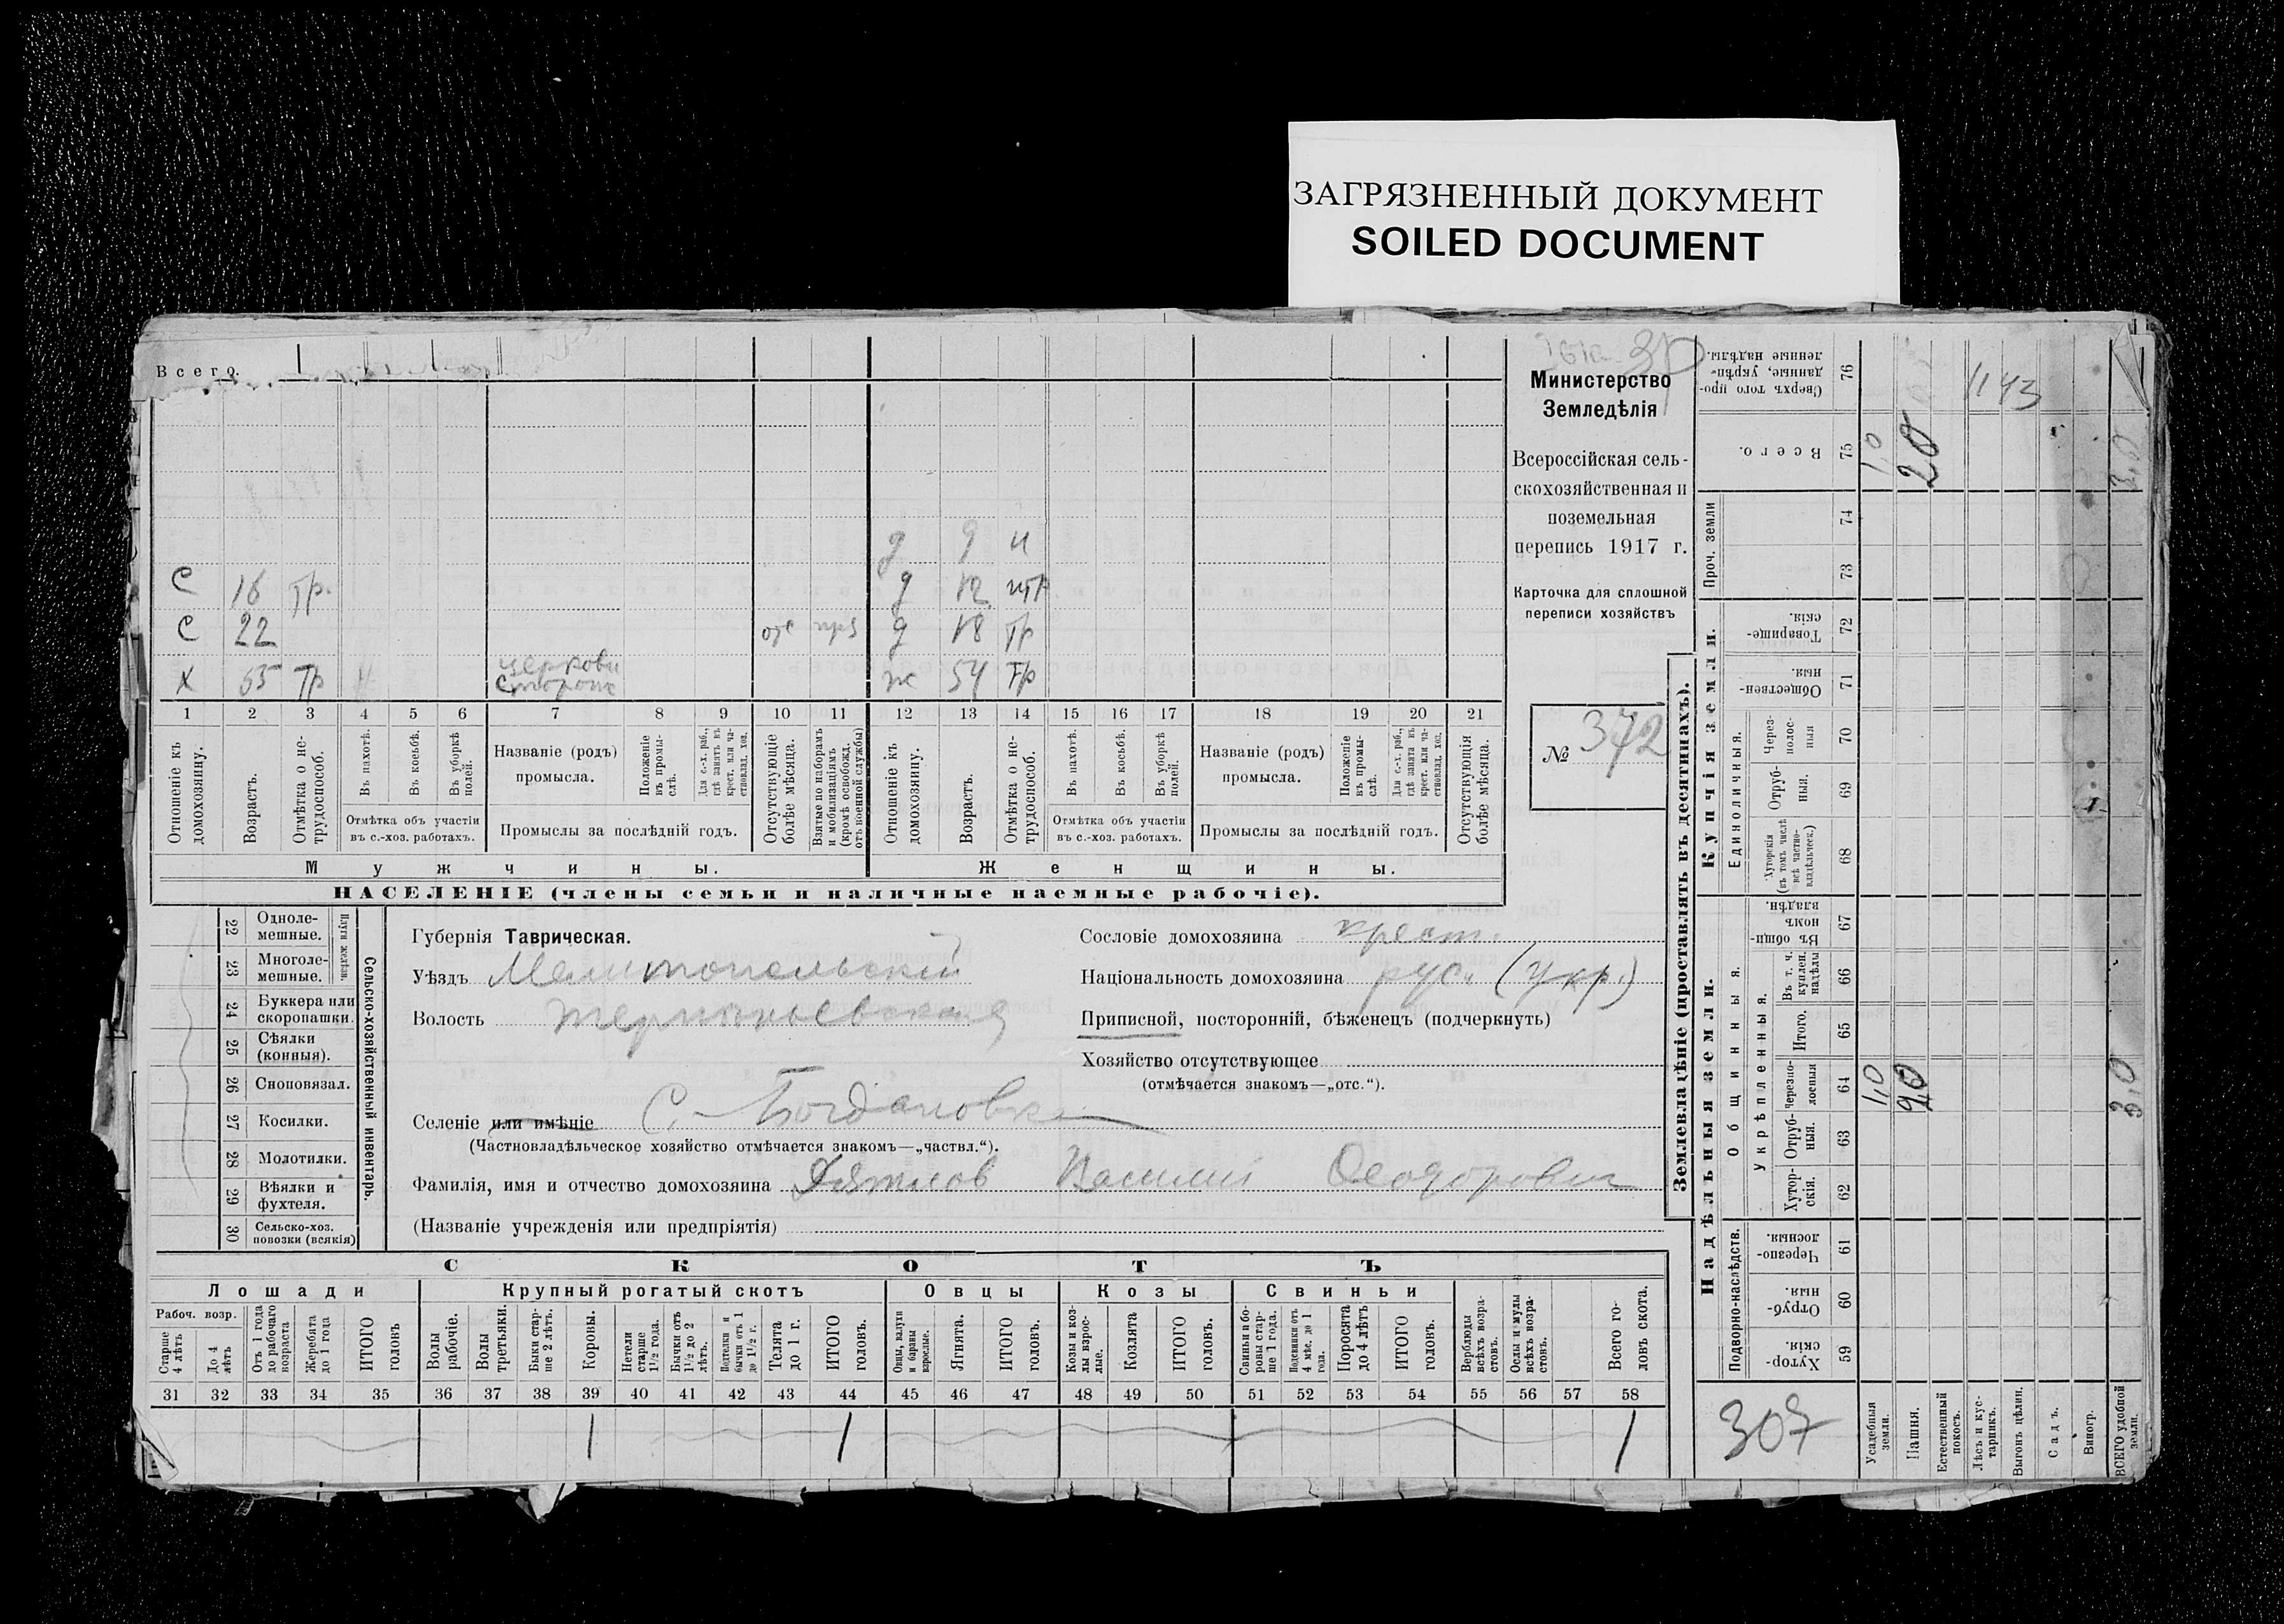 ЗАГРЯЗНЕННЫЙ ДОКУМЕНТ
SOILED DOCUMENT
Всего.
д 9 н
С 16 тр. д 12 нтр
С 22 отс д 18 тр
Х 55 тр церкови сторож ж 54 тр
1 2 3 4 5 6 7 8 9 10 11 12 13 14 15 16 17 18 19 20 21
Отношеніе къ домохозяину.
Возрастъ.
Отмѣтка о нетрудоспособ.
Въ пахотѣ.
Въ косьбѣ.
Въ уборкѣ полей.
Отмѣтка объ участіи въ с.-хоз. работахъ.
Названіе (родъ) промысла.
Положеніе въ промыслѣ.
Для с.-х. раб., гдѣ занятъ въ крест. или частновлад. хоз.
Промыслы за послѣдній годъ.
Отсутствующіе болѣе мѣсяца.
Взятые по наборамъ и мобилизаціямъ (кромѣ освобожд. отъ военной службы)
Отношеніе къ домохозяину.
Возрастъ.
Отмѣтка о нетрудоспособ.
Въ пахотѣ.
Въ косьбѣ.
Въ уборкѣ полей.
Отмѣтка объ участіи въ с.-хоз. работахъ.
Названіе (родъ) промысла.
Положеніе въ промыслѣ.
Для с.-х. раб., гдѣ занятъ въ крест. или частновлад. хоз.
Промыслы за послѣдній годъ.
Отсутствующія болѣе мѣсяца.
Мужчины. Женщины.
НАСЕЛЕНІЕ (члены семьи и наличные наемные рабочіе).
Министерство
Земледѣлія
Всероссійская сель-
скохозяйственная и
поземельная
перепись 1917 г.
Карточка для сплошной
переписи хозяйствъ
№ 372
22 Одноле-
мешные.
23 Многоле-
мешные.
Плуги желѣзн.
24 Буккера или
скоропашки.
25 Сѣялки
(конныя).
26 Сноповязал.
27 Косилки.
28 Молотилки.
29 Вѣялки и
фухтеля.
30 Сельско-хоз.
повозки (всякія)
Сельско-хозяйственный инвентарь.
Губернія Таврическая.
Уѣздъ Мелитопольскій
Волость
Селеніе или имѣніе С. Богдановка
(Частновладѣльческое хозяйство отмѣчается знакомъ—„частвл.“).
Фамилія, имя и отчество домохозяина Дятлов Василий Феодорович
(Названіе учрежденія или предпріятія)
Сословіе домохозяина крест.
Національность домохозяина рус. (укр.)
Приписной, посторонній, бѣженецъ (подчеркнуть)
Хозяйство отсутствующее
(отмѣчается знакомъ—„отс.“).
СКОТЪ
Лошади Крупный рогатый скотъ Овцы Козы Свиньи
Рабоч. возр.
Старше 4 лѣтъ
До 4 лѣтъ
Отъ 1 года до рабочаго возраста
Жеребята до 1 года
ИТОГО головъ
Волы рабочіе.
Волы третьяки.
Быки старше 2 лѣтъ.
Коровы.
Нетели старше 1½ года.
Бычки отъ 1½ до 2 лѣтъ.
Подтелки и бычки отъ 1 до 1½ г.
Телята до 1 г.
ИТОГО головъ.
Овцы, валухи и бараны взрослые.
Ягнята.
ИТОГО головъ.
Козы и козлы взрослые.
Козлята
ИТОГО головъ.
Свиньи и боровы старше 1 года.
Подсвинки отъ 4 мѣс. до 1 года.
Поросята до 4 лѣтъ
ИТОГО головъ.
Верблюды всѣхъ возрастовъ.
Ослы и мулы всѣхъ возрастовъ.
Всего головъ скота.
31 32 33 34 35 36 37 38 39 40 41 42 43 44 45 46 47 48 49 50 51 52 53 54 55 56 57 58
1 1 1
Землевладѣніе (проставлять въ десятинахъ).
Надѣльныя земли. Купчія земли.
Подворно-наслѣдств. Общинныя. Единоличныя. Проч. земли
Укрѣпленныя.
Сверхъ того проданные, укрѣпленные надѣлы. 76
Всего. 75
74
73
Товарищескія. 72
Общественныя. 71
Черезполосныя 70
Отрубныя. 69
Хуторскія (въ томъ числѣ всѣ частновладѣльческ.) 68
Въ общинномъ владѣн. 67
Въ т. ч. куплен. надѣлы 66
Итого. 65
Черезполосныя 64
Отрубныя. 63
Хуторскія. 62
Черезполосныя. 61
Отрубныя. 60
Хуторскія. 59
307
Усадебныя земли. 1,0 1,0
Пашня. 2,0 20
Естественный покосъ.
Лѣсъ и кустарникъ. 1143
Выгонъ цѣлин.
Садъ.
Виногр.
ВСЕГО удобной земли. 3,0 3,0